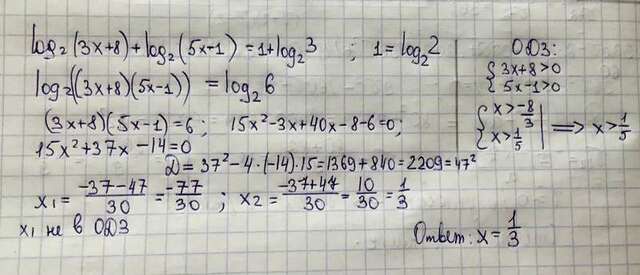 log₂(3x+8)+log₂(5x-1)=1+log₂3 ; 1=log₂2
log₂((3x+8)(5x-1)) = log₂6
(3x+8)(5x-1)=6; 15x²-3x+40x-8-6=0;
15x²+37x-14=0
D=37²-4·(-14)·15=1369+840=2209=47²
x₁ = (-37-47)/30 = -77/30 ; x₂ = (-37+47)/30 = 10/30 = 1/3
x₁ не в ОДЗ
ОДЗ:
{3x+8>0
5x-1>0
{x>-8/3
x>1/5 | => x>1/5
Ответ: x=1/3